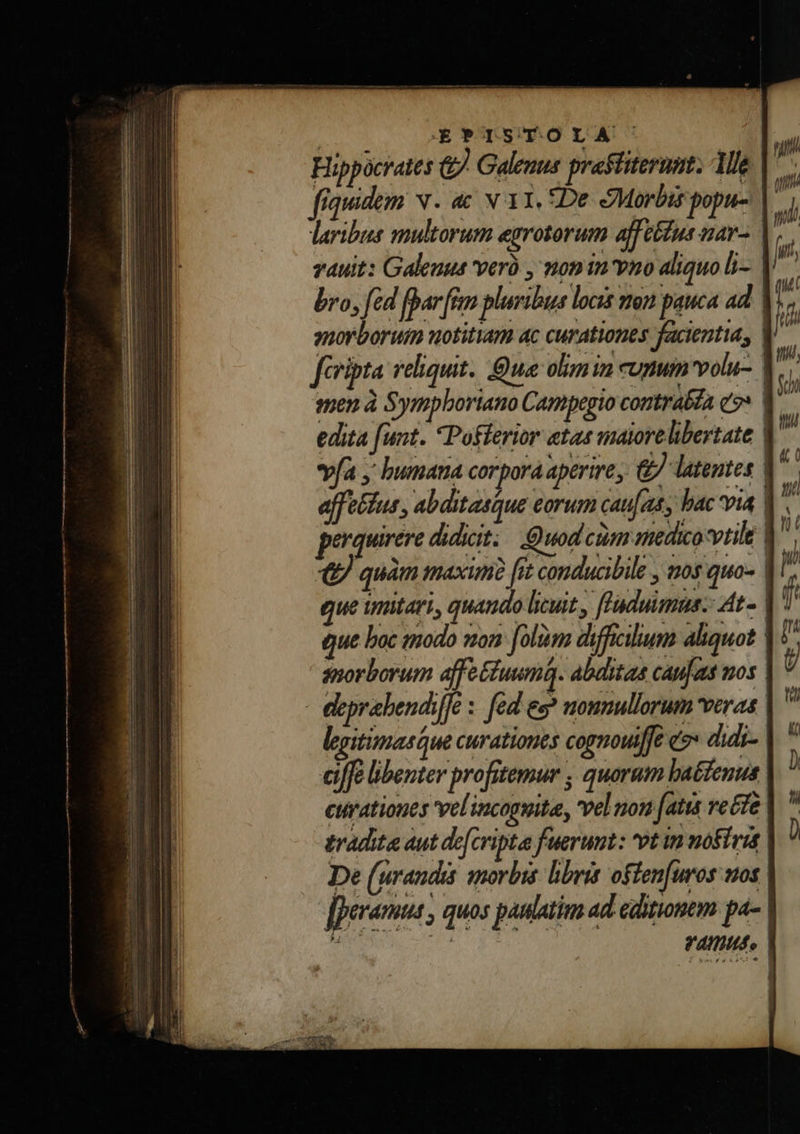 EPISTOLA
Hippocrates & Galenus præstiterunt. Ille
siquidem v. ac VII. De Morbis popu-
laribus multorum ægrotorum affectus nar-
rauit: Galenus verò, non in vno aliquo li-
bro, sed sparsim pluribus locis non pauca ad
morborum notitiam ac curationes facientia,
scripta reliquit. Quæ olim in vnum volu-
men à Symphoriano Campegio contracta &
edita sunt. Posterior ætas maiore libertate
vsa, humana corpora aperire, & latentes
affectus, abditasque eorum causas, hac via
perquirere didicit. Quod cùm medico vtile
& quàm maximè sit conducibile, nos quo-
que imitari, quando licuit, studuimus. At-
que hoc modo non solùm difficilium aliquot
morborum affectuumq. abditas causas nos
depræhendisse: sed & nonnullorum veras
legitimasque curationes cognouisse & didi-
cisse libenter profitemur, quorum hactenus
curationes vel incognitæ, vel non satis rectè
traditæ aut descriptæ fuerunt: vt in nostris
De Curandis morbis libris ostensuros nos
speramus, quos paulatim ad editionem pa-
ramus.